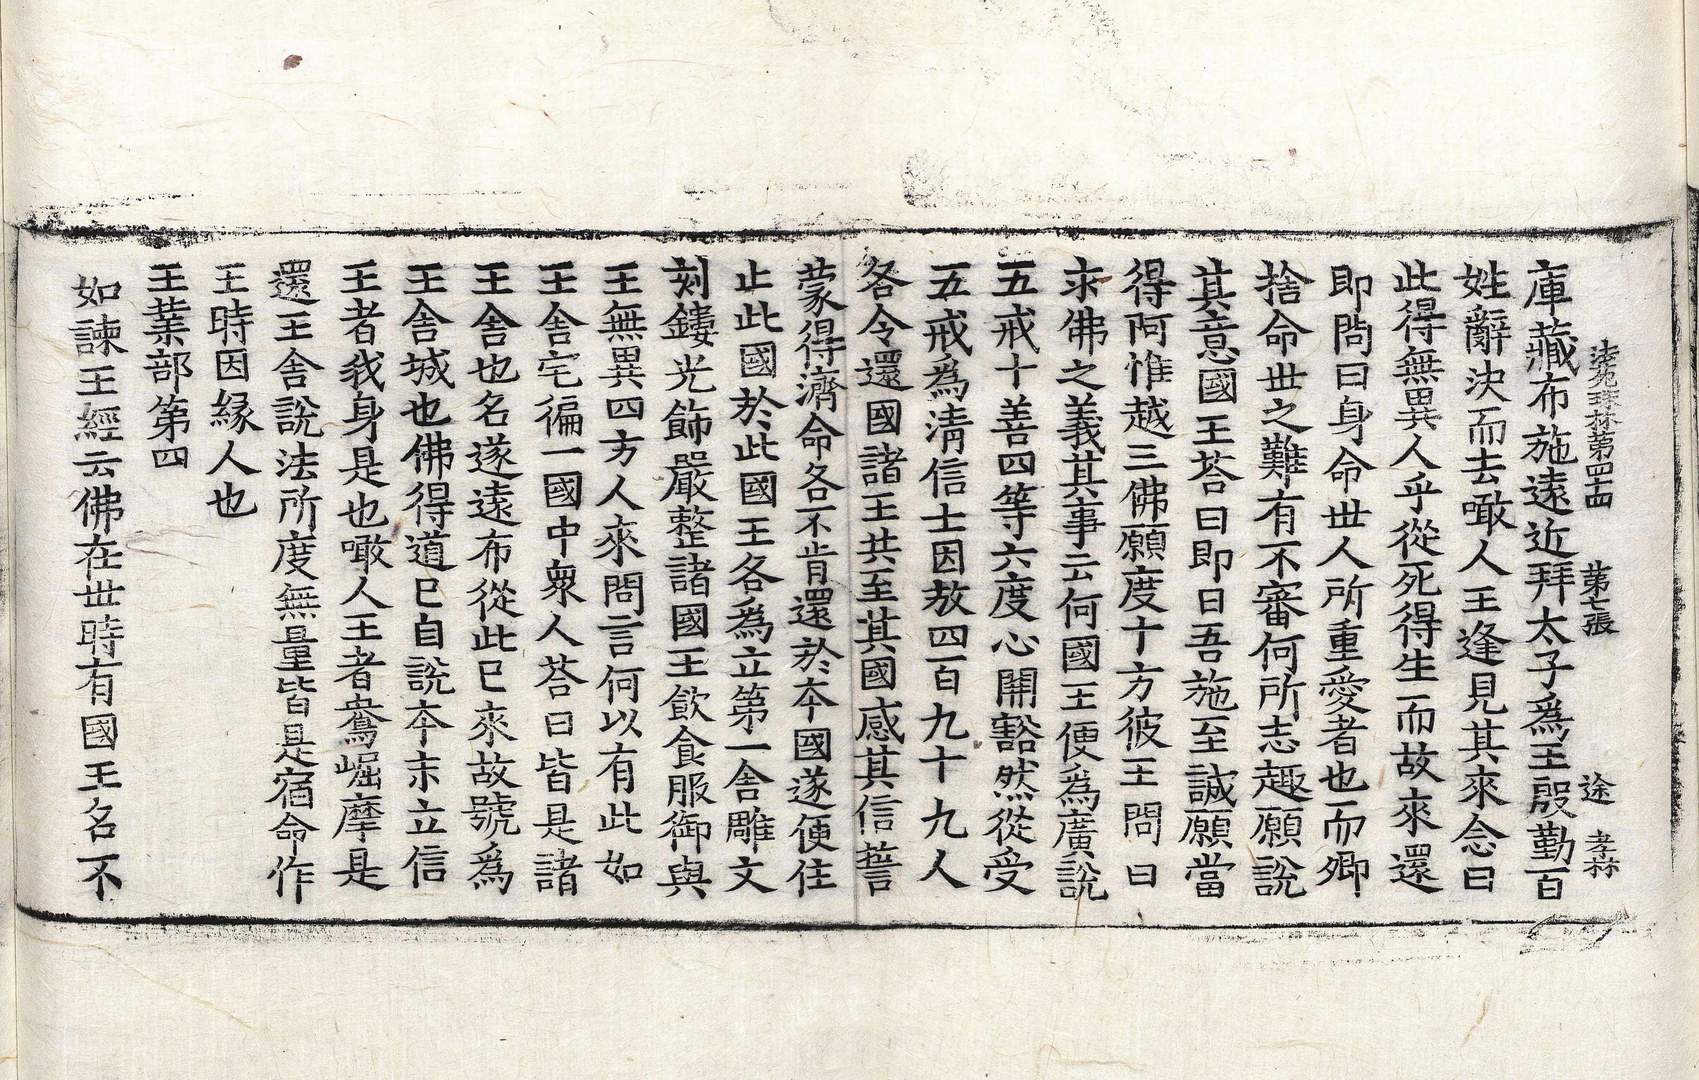 法苑珠林第四十四 第七張 途 孝林
庫藏布施遠近拜太子爲王殷勤百
姓辭決而去噉人王逢見其來念曰
此得無異人乎從死得生而故來還
即問曰身命世人所重愛者也而卿
捨命世之難有不審何所志趣願說
其意國王荅曰即日吾施至誠願當
得阿惟越三佛願度十方彼王問曰
求佛之義其事云何國王便爲廣說
五戒十善四等六度心開豁然從受
五戒爲淸信士因放四百九十九人
各令還國諸王共至其國感其信誓
蒙得濟命各不肯還於本國遂便住
止此國於此國王各爲立第一舍雕文
刻鏤光飾嚴整諸國王飮食服御與
王無異四方人來問言何以有此如
王舍宅徧一國中衆人荅曰皆是諸
王舍也名遂遠布從此已來故號爲
王舍城也佛得道已自說本末立信
王者我身是也噉人王者鴦崛摩是
還王舍說法所度無量皆是宿命作
王時因緣人也
王業部第四
如諫王經云佛在世時有國王名不